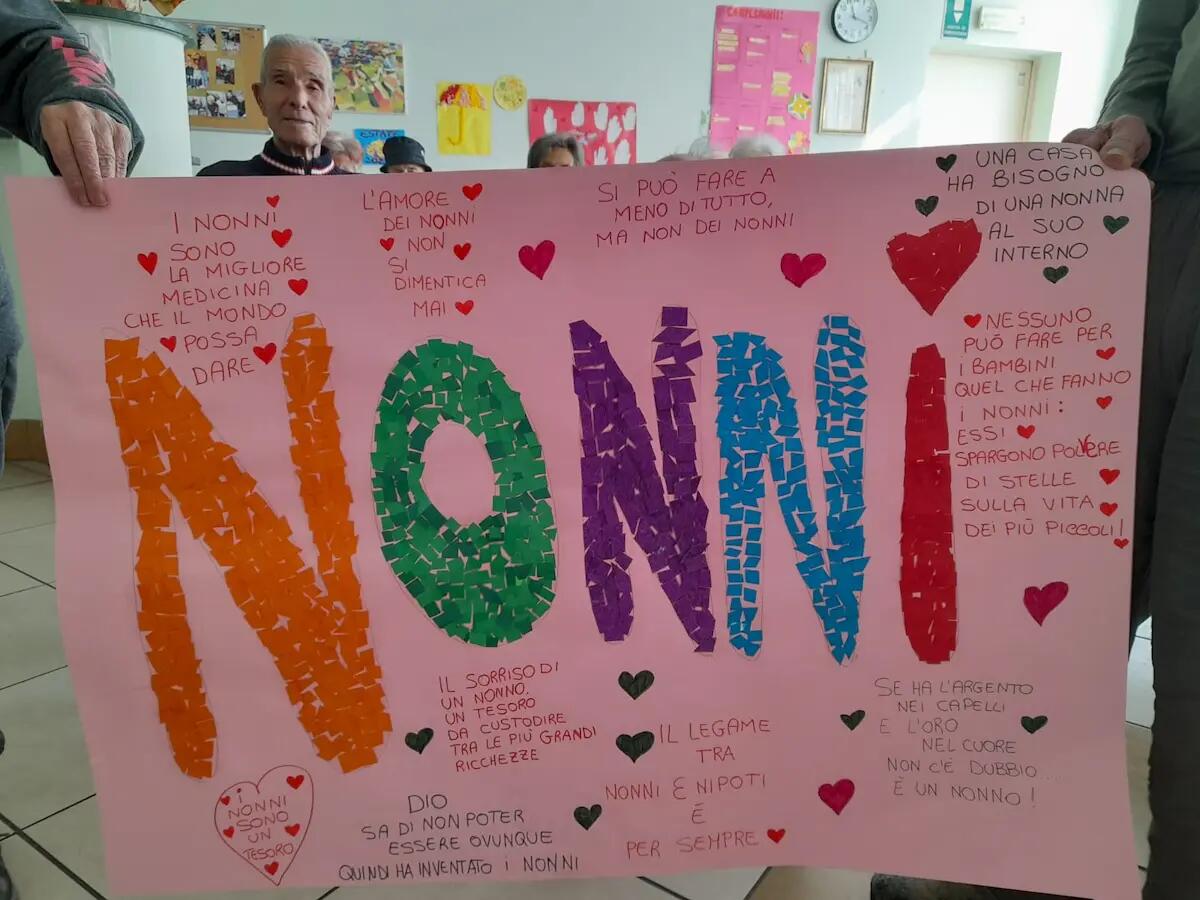 COMPLEANNI!
ESTATE
I NONNI
SONO
LA MIGLIORE
MEDICINA
CHE IL MONDO
POSSA
DARE
L'AMORE
DEI NONNI
NON
SI
DIMENTICA
MAI
SI PUÒ FARE A
MENO DI TUTTO,
MA NON DEI NONNI
UNA CASA
HA BISOGNO
DI UNA NONNA
AL SUO
INTERNO
NONNI
NESSUNO
PUÒ FARE PER
i BAMBINI
QUEL CHE FANNO
i NONNI:
ESSI
SPARGONO POLVERE
DI STELLE
SULLA VITA
DEI PIÙ PICCOLI!
IL SORRISO DI
UN NONNO.
UN TESORO
DA CUSTODIRE
TRA LE PIÙ GRANDI
RICCHEZZE
IL LEGAME
TRA
NONNI E NIPOTI
É
PER SEMPRE
SE HA L'ARGENTO
NEI CAPELLI
E L'ORO
NEL CUORE
NON C'É DUBBIO...
É UN NONNO!
i
NONNI
SONO
UN
TESORO
DIO
SA DI NON POTER
ESSERE OVUNQUE
QUINDI HA INVENTATO i NONNI